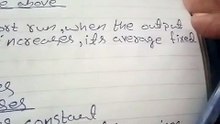 above
ort run, when the output
increases, its average fixed
es
ses
constant